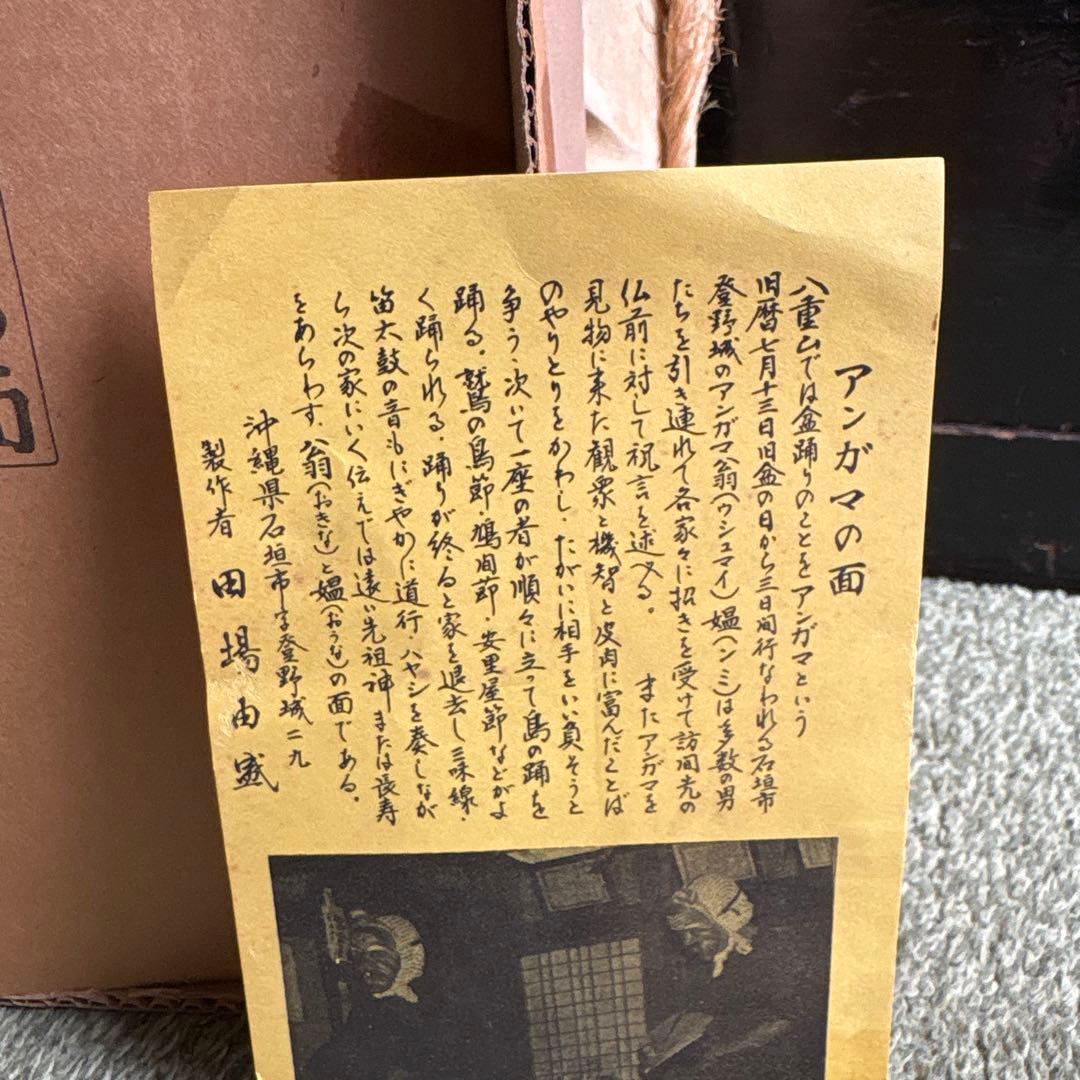 アンガマの面
八重山では盆踊りのことをアンガマという
旧暦七月十三日旧盆の日から三日間行なわれる石垣市
登野城のアンガマ翁(ウシュマイ)媼(ンミ)は多数の男
たちを引き連れて各家々に招きを受けて訪問先の
仏前に対して祝言を述べる。 またアンガマを
見物に来た観衆と機智と皮肉に富んだことば
のやりとりをかわし、たがいに相手をいい負そうと
争う、次いで一座の者が順々に立って島の踊を
踊る。鷲の鳥節・鳩間節・安里屋節などがよ
く踊られる。踊りが終ると家を退去し三味線・
笛太鼓の音もにぎやかに道行・ハヤシを奏しなが
ら次の家にいく伝えでは遠い先祖神または長寿
をあらわす、翁(おきな)と媼(おうな)の面である。
沖縄県石垣市字登野城二九
製作者 田場由盛